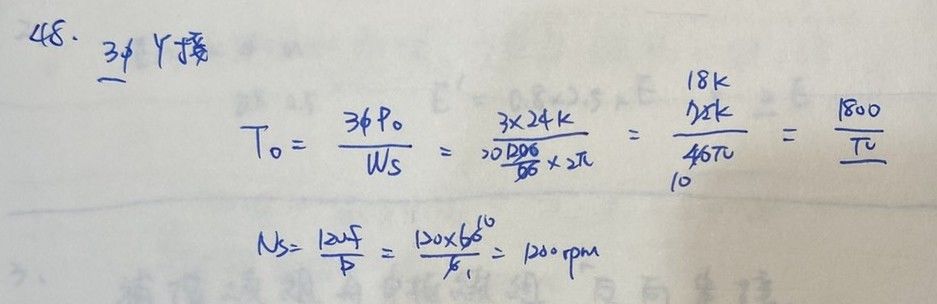 48. 3φ Y接
T₀ = 3φP₀ / Ws = 3×24K / (1200/60 × 2π) 20 = 72K 18K / 40π 10 = 1800 / π
Ns = 120f / P = 120×60 10 / 6 1 = 1200 rpm